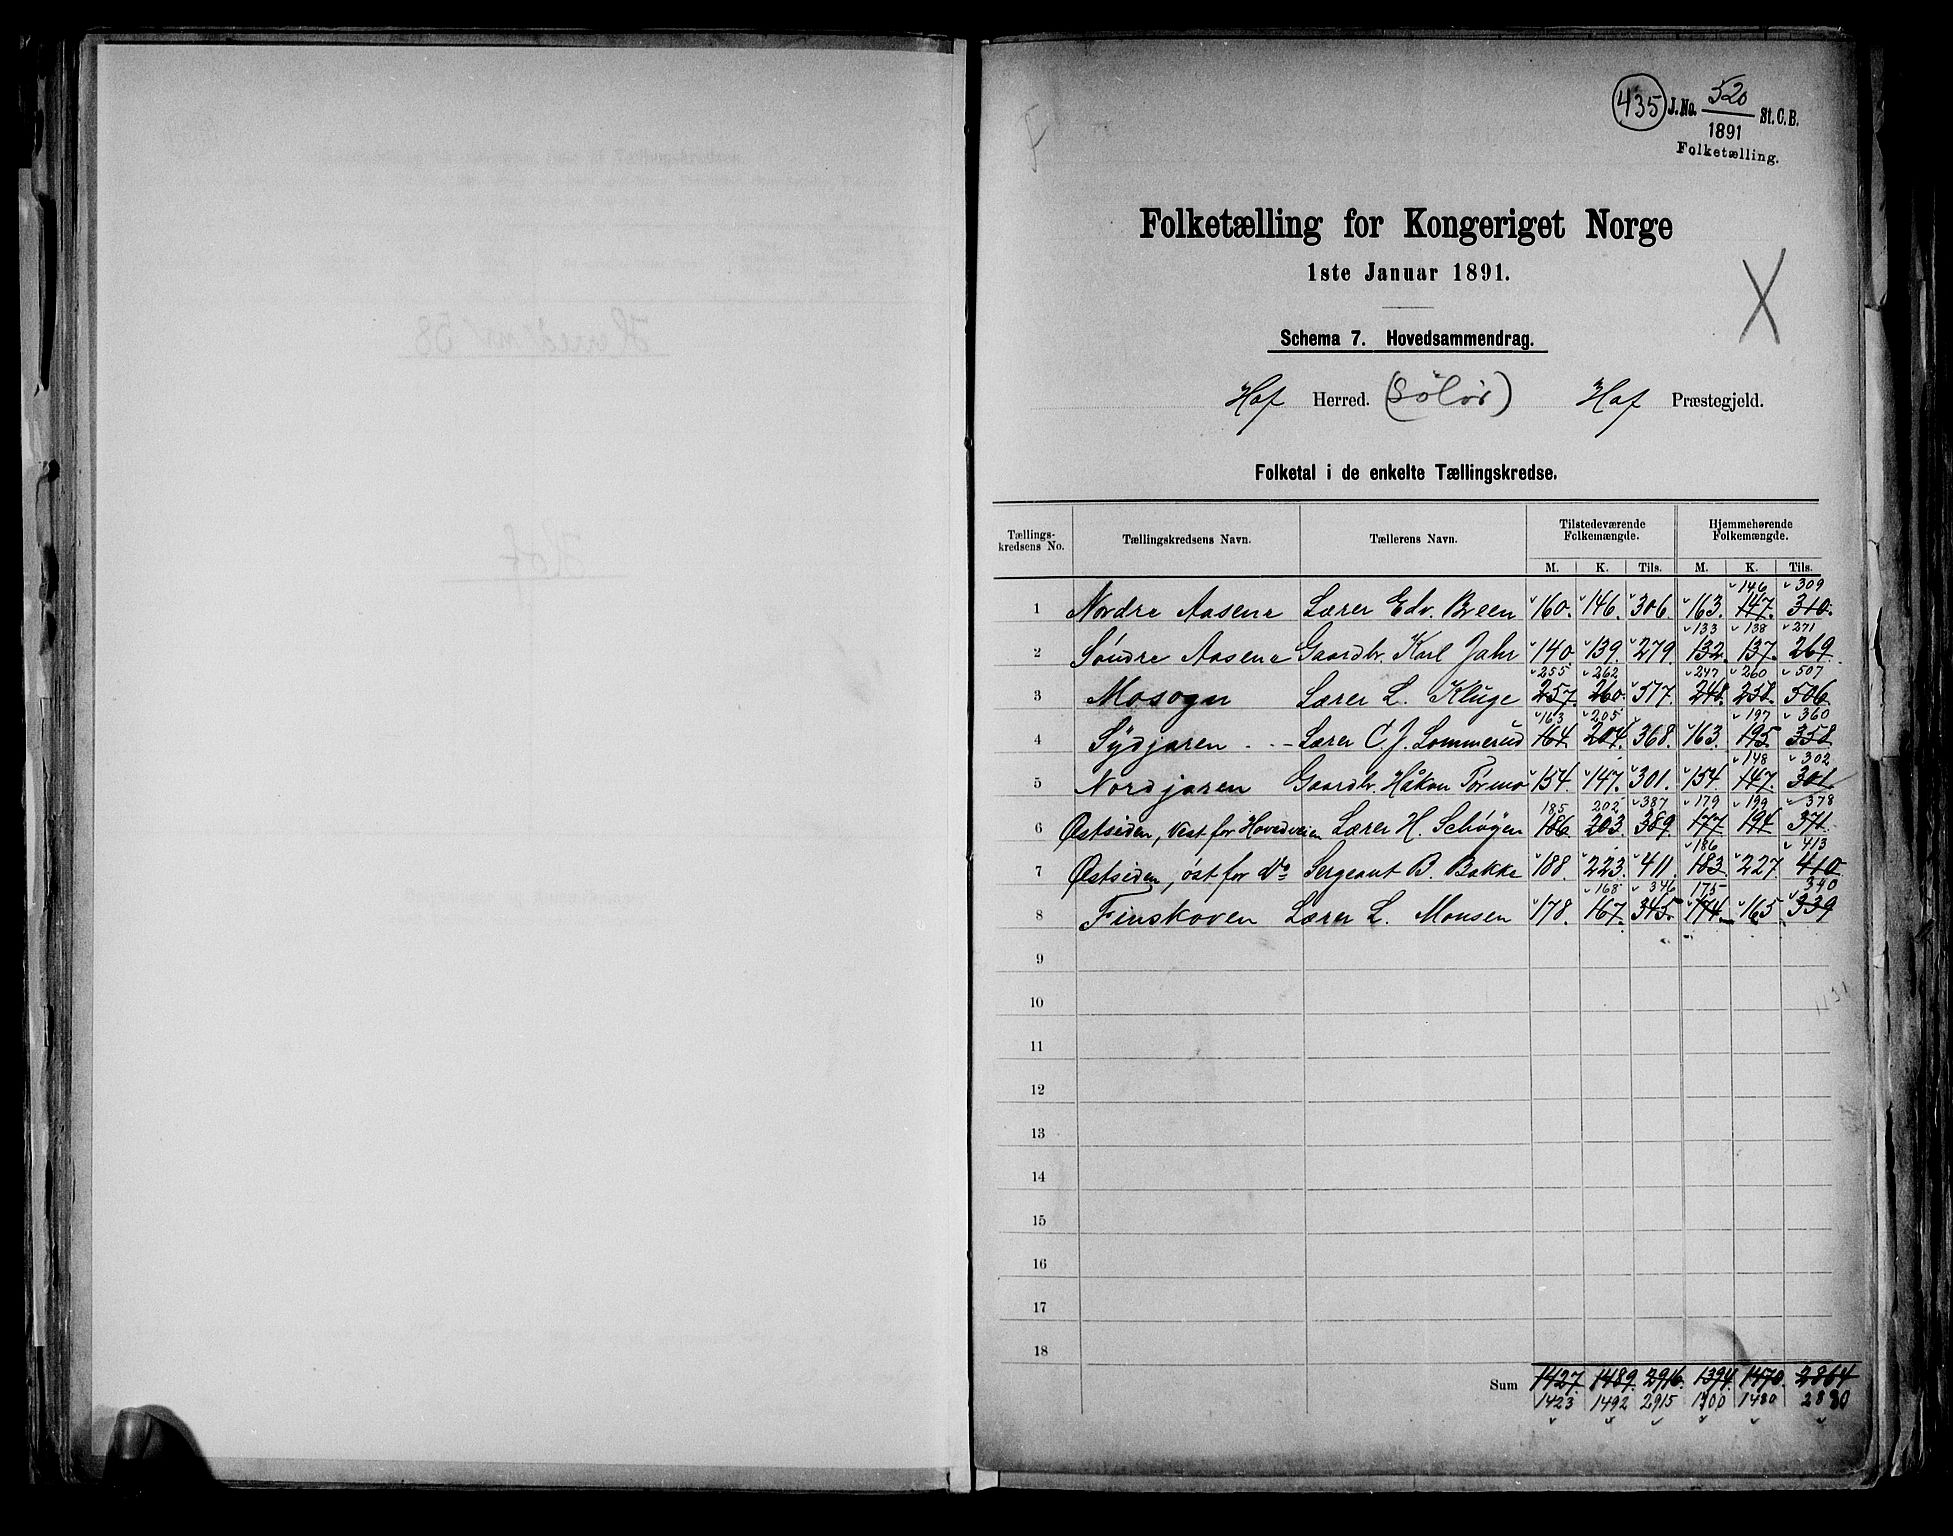 435 J. No. 520 St. C. B.
1891
Folketælling.
Folketælling for Kongeriget Norge
1ste Januar 1891.
Schema 7. Hovedsammendrag.
Hof Herred. (Solør) Hof Præstegjeld.
Folketal i de enkelte Tællingskredse.
Tællings-kredsens No. Tællingskredsens Navn. Tællerens Navn. Tilstedeværende Folkemængde. Hjemmehørende Folkemængde.
M. K. Tils. M. K. Tils.
146 309
1 Nordre Aasene Lærer Edv. Breen 160. 146. 306. 163. 147. 310.
133 138 271
2 Søndre Aasene Gaardbr. Karl Jahr 140 139. 279. 132. 137. 269.
255 262 247 260 507
3 Mosogn Lærer L. Kluge 257. 260. 517. 248. 258. 506.
163 205 197 360
4 Sydjaren Lærer C. J. Lommerud 164 204. 368. 163. 195 358
148 302
5 Nordjaren Gaardbr. Håkon Tørmo 154. 147. 301. 154. 147. 301
185 202 387 179 199 378
6 Østsiden, vest for Hovedveien Lærer H. Schøyen 186 203. 389. 177 194 371.
186 413
7 Østsiden, øst for do Sergeant B. Bakke 188. 223. 411. 183. 227. 410
168 346 175 340
8 Finskoven Lærer L. Monsen 178. 167. 345. 174 165. 339
9
10
11
12
13
14
15
16
17
18
Sum 1427. 1489. 2916. 1394. 1470. 2864
1423 1492 2915 1400 1480 2880